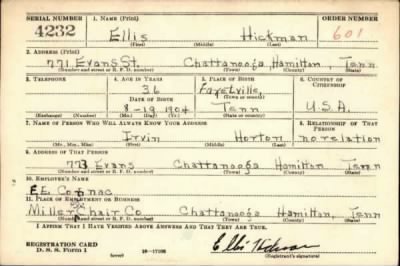 SERIAL NUMBER 1. NAME (Print) ORDER NUMBER
4232 Ellis Hickman 601
(First) (Middle) (Last)
2. ADDRESS (Print)
771 Evans St. Chattanooga, Hamilton, Tenn
(Number and street or R. F. D. number) (Town) (County) (State)
3. TELEPHONE 4. AGE IN YEARS 5. PLACE OF BIRTH 6. COUNTRY OF CITIZENSHIP
36 Fayetville,
DATE OF BIRTH (Town or county)
8-19-1904 Tenn U.S.A.
(Exchange) (Number) (Mo.) (Day) (Yr.) (State or country)
7. NAME OF PERSON WHO WILL ALWAYS KNOW YOUR ADDRESS 8. RELATIONSHIP OF THAT PERSON
Irvin Horton no relation
(Mr., Mrs., Miss) (First) (Middle) (Last)
9. ADDRESS OF THAT PERSON
773 Evans Chattanooga Hamilton Tenn
(Number and street or R. F. D. number) (Town) (County) (State)
10. EMPLOYER'S NAME
E.E.
11. PLACE OF EMPLOYMENT OR BUSINESS
Miller Chair Co Chattanooga Hamilton, Tenn
(Number and street or R. F. D. number) (Town) (County) (State)
I AFFIRM THAT I HAVE VERIFIED ABOVE ANSWERS AND THAT THEY ARE TRUE.
REGISTRATION CARD
D. S. S. Form 1 (over) Ellis
(Registrant's signature)